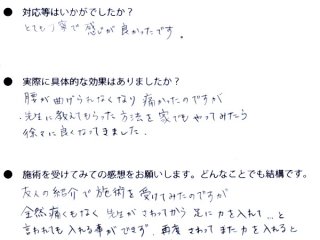 ● 対応等はいかがでしたか？
とても丁寧で感じが良かったです。
● 実際に具体的な効果はありましたか？
腰が曲げられなくなり痛かったのですが
先生に教えてもらった方法を家でもやってみたら
徐々に良くなってきました。
● 施術を受けてみての感想をお願いします。どんなことでも結構です。
友人の紹介で施術を受けてみたのですが
全然痛くもなく先生がさわってから足に力を入れて…と
言われても入れる事ができず、再度さわってまた力を入れると